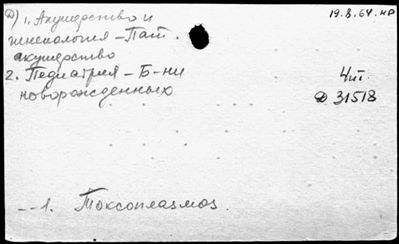 Д) 1. Акушерство и
гинекология – Пат.
акушерство
2. Педиатрия – Б-ни
новорожденных
19.8.64.НР
4шт.
Д 31518
--1. Токсоплазмоз.